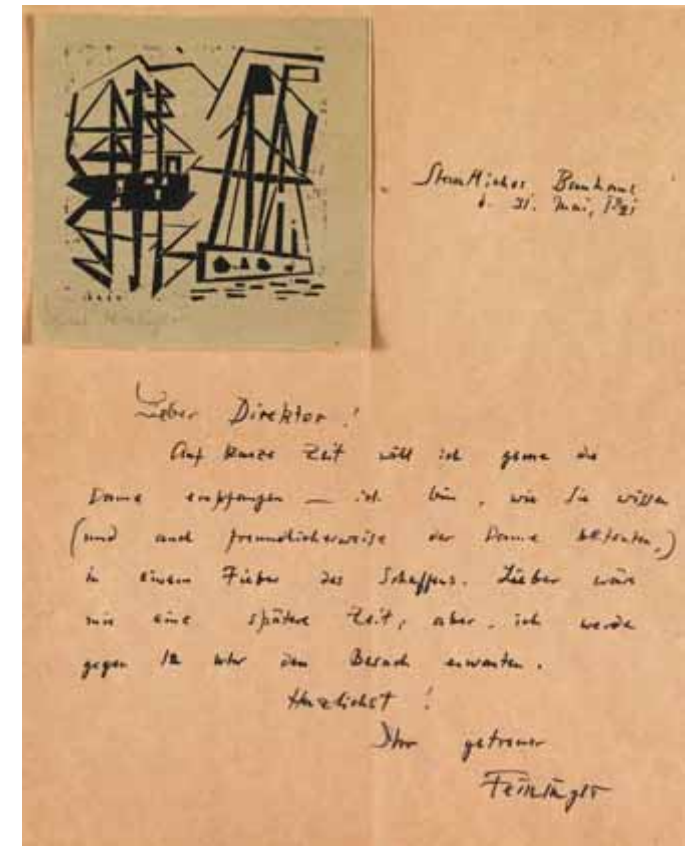 Staatliches Bauhaus
d. 31. Mai, 1921
Lieber Direktor!
Auf kurze Zeit will ich gerne die
Dame empfangen — ich bin, wie Sie wissen
(und auch freundlicherweise der Dame betonten,)
in einem Fieber des Schaffens. Lieber wäre
mir eine spätere Zeit, aber, ich werde
gegen 12 Uhr den Besuch erwarten.
Herzlichst!
Ihr getreuer
Feininger